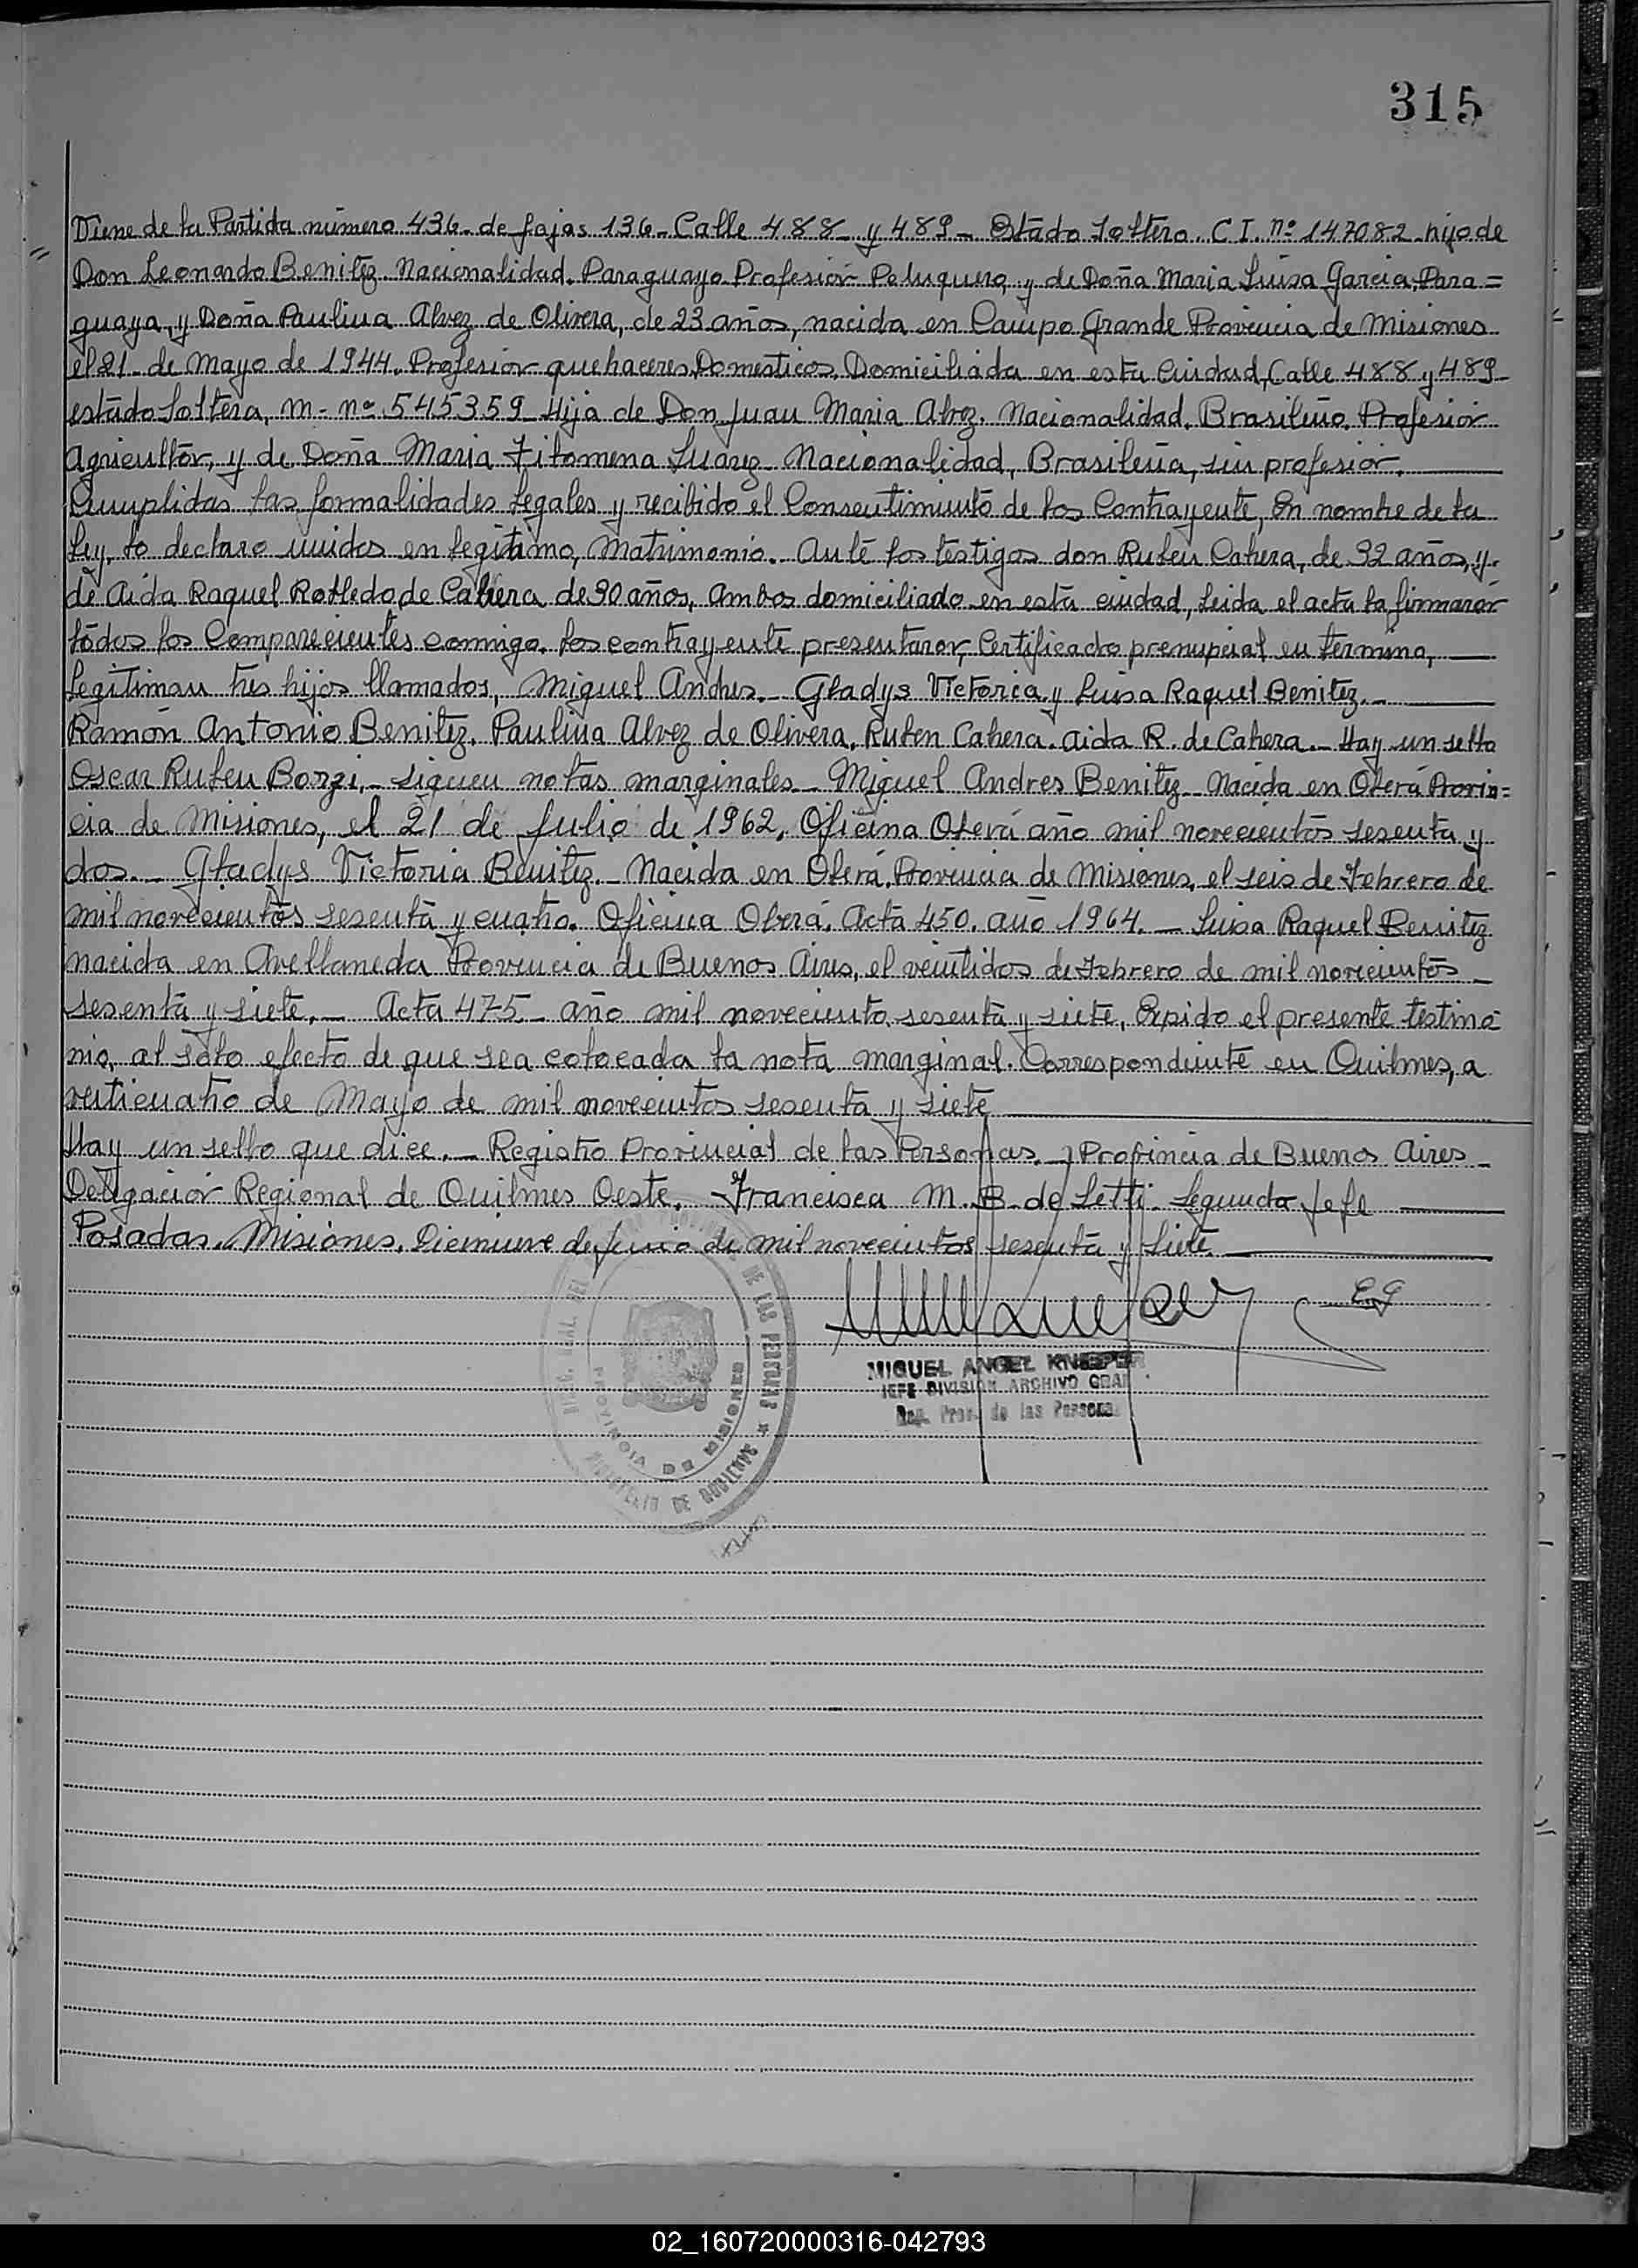 315
Viene de la Partida número 436- de fojas 136- Calle 488- y 489- Estado Soltero. C I. nº 147082- hijo de
Don Leonardo Benitez. Nacionalidad. Paraguayo. Profesión Peluquero, y de Doña Maria Luisa Garcia, Para=
guaya, y Doña Paulina Alvez de Olivera, de 23 años, nacida en Campo Grande Provincia de Misiones
el 21- de Mayo de 1944. Profesion quehaceres Domesticos, Domiciliada en esta Ciudad, Calle 488 y 489-
estado Soltera, m- nº 545359- Hija de Don Juan Maria Alvez. Nacionalidad. Brasileño. Profesión
Agricultor, y de Doña Maria Filomena Suárez- Nacionalidad, Brasileña, sin profesión.
Cumplidas las formalidades legales y recibido el Consentimiento de los Contrayente, En nombre de la
Ley, lo declaro unidos en legitimo, Matrimonio. Ante los testigos don Ruben Cabrera, de 32 años, y-
de Aida Raquel Robledo de Cabrera de 30 años, ambos domiciliado en esta ciudad, leida el acta la firmaron
todos los Comparecientes conmigo. los contrayente presentaron, Certificado prenupcial en termino,
Legitiman tres hijos llamados, Miguel Andres.- Gladys Victoria y Luisa Raquel Benitez.-
Ramón Antonio Benitez. Paulina Alvez de Olivera, Ruben Cabrera. Aida R. de Cabrera.- Hay un sello
Oscar Ruben Borzi,- siguen notas marginales- Miguel Andres Benitez- Nacida en Oberá Provin=
cia de Misiones, el 21 de Julio de 1962, Oficina Oberá año mil novecientos sesenta y
dos.- Gladys Victoria Benitez.- Nacida en Oberá, Provincia de Misiones, el seis de Febrero de
mil novecientos sesenta y cuatro. Oficina Oberá. Acta 450. año 1964.- Luisa Raquel Benitez
nacida en Avellaneda Provincia de Buenos Aires, el veintidos de Febrero de mil novecientos
sesenta y siete.- Acta 475- año mil novecientos, sesenta y siete, Expido el presente testimo
nio, al solo efecto de que sea colocada la nota marginal. Correspondiente en Quilmes, a
veiticuatro de Mayo de mil novecientos sesenta y siete
Hay un sello que dice.- Registro Provincial de las Personas.- Provincia de Buenos Aires-
Delegación Regional de Quilmes Oeste.- Francisca M. B. de Letti- Segunda Jefe
Posadas. Misiones. de junio de mil novecientos sesenta y siete.
EG
MIGUEL ANGEL KNEEPER
JEFE DIVISION ARCHIVO GRAL.
Reg. Prov. de las Personas
DE LAS PERSONAS * MINISTERIO DE GOBIERNO
PROVINCIA DE MISIONES
02_160720000316-042793